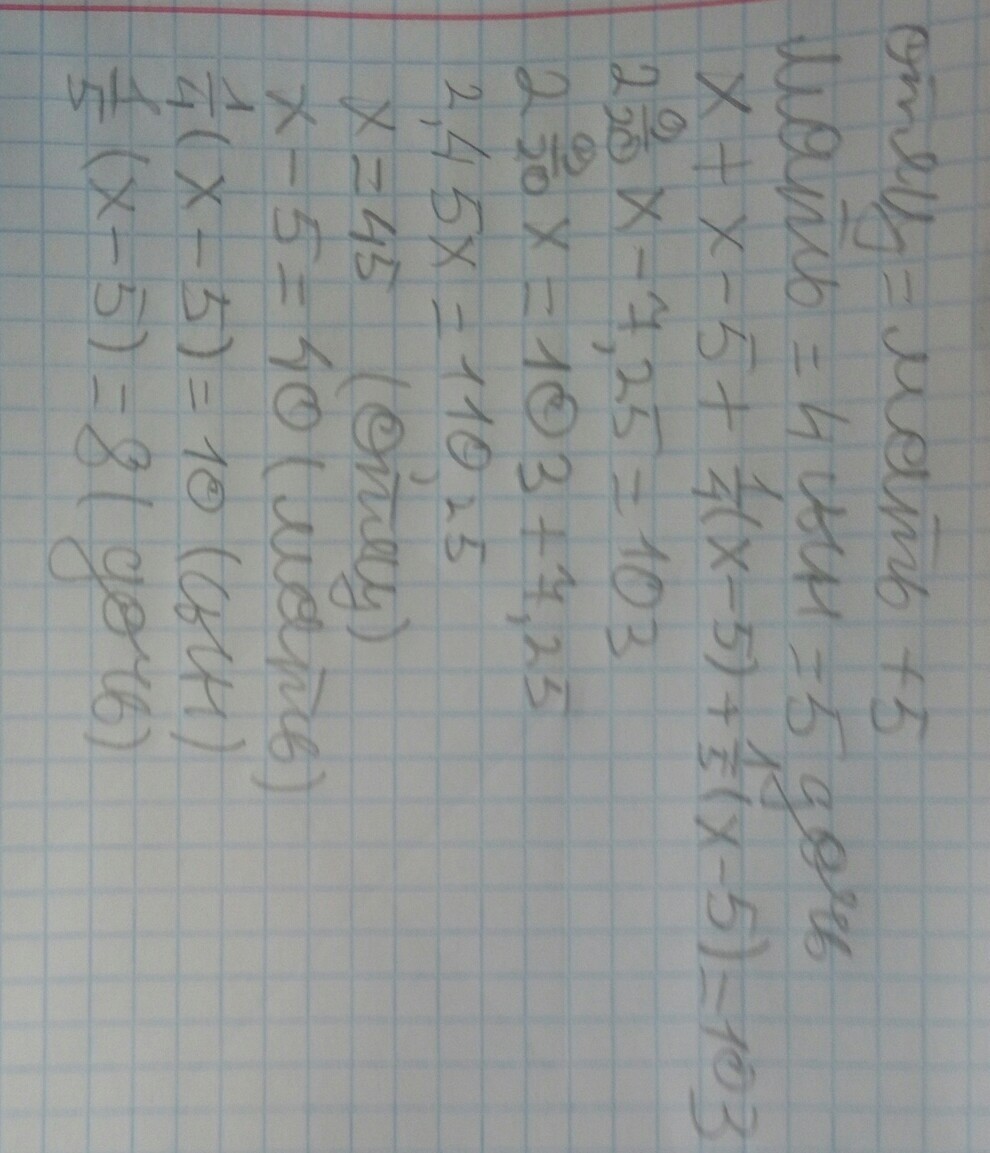 отец = мать + 5
мать = 4 сын = 5 дочь
x + x - 5 + 1/4(x - 5) + 1/5(x - 5) = 103
2 9/20 x - 7,25 = 103
2 9/20 x = 103 + 7,25
2,45x = 110,25
x = 45 (отец)
x - 5 = 40 (мать)
1/4(x - 5) = 10 (сын)
1/5(x - 5) = 8 (дочь)